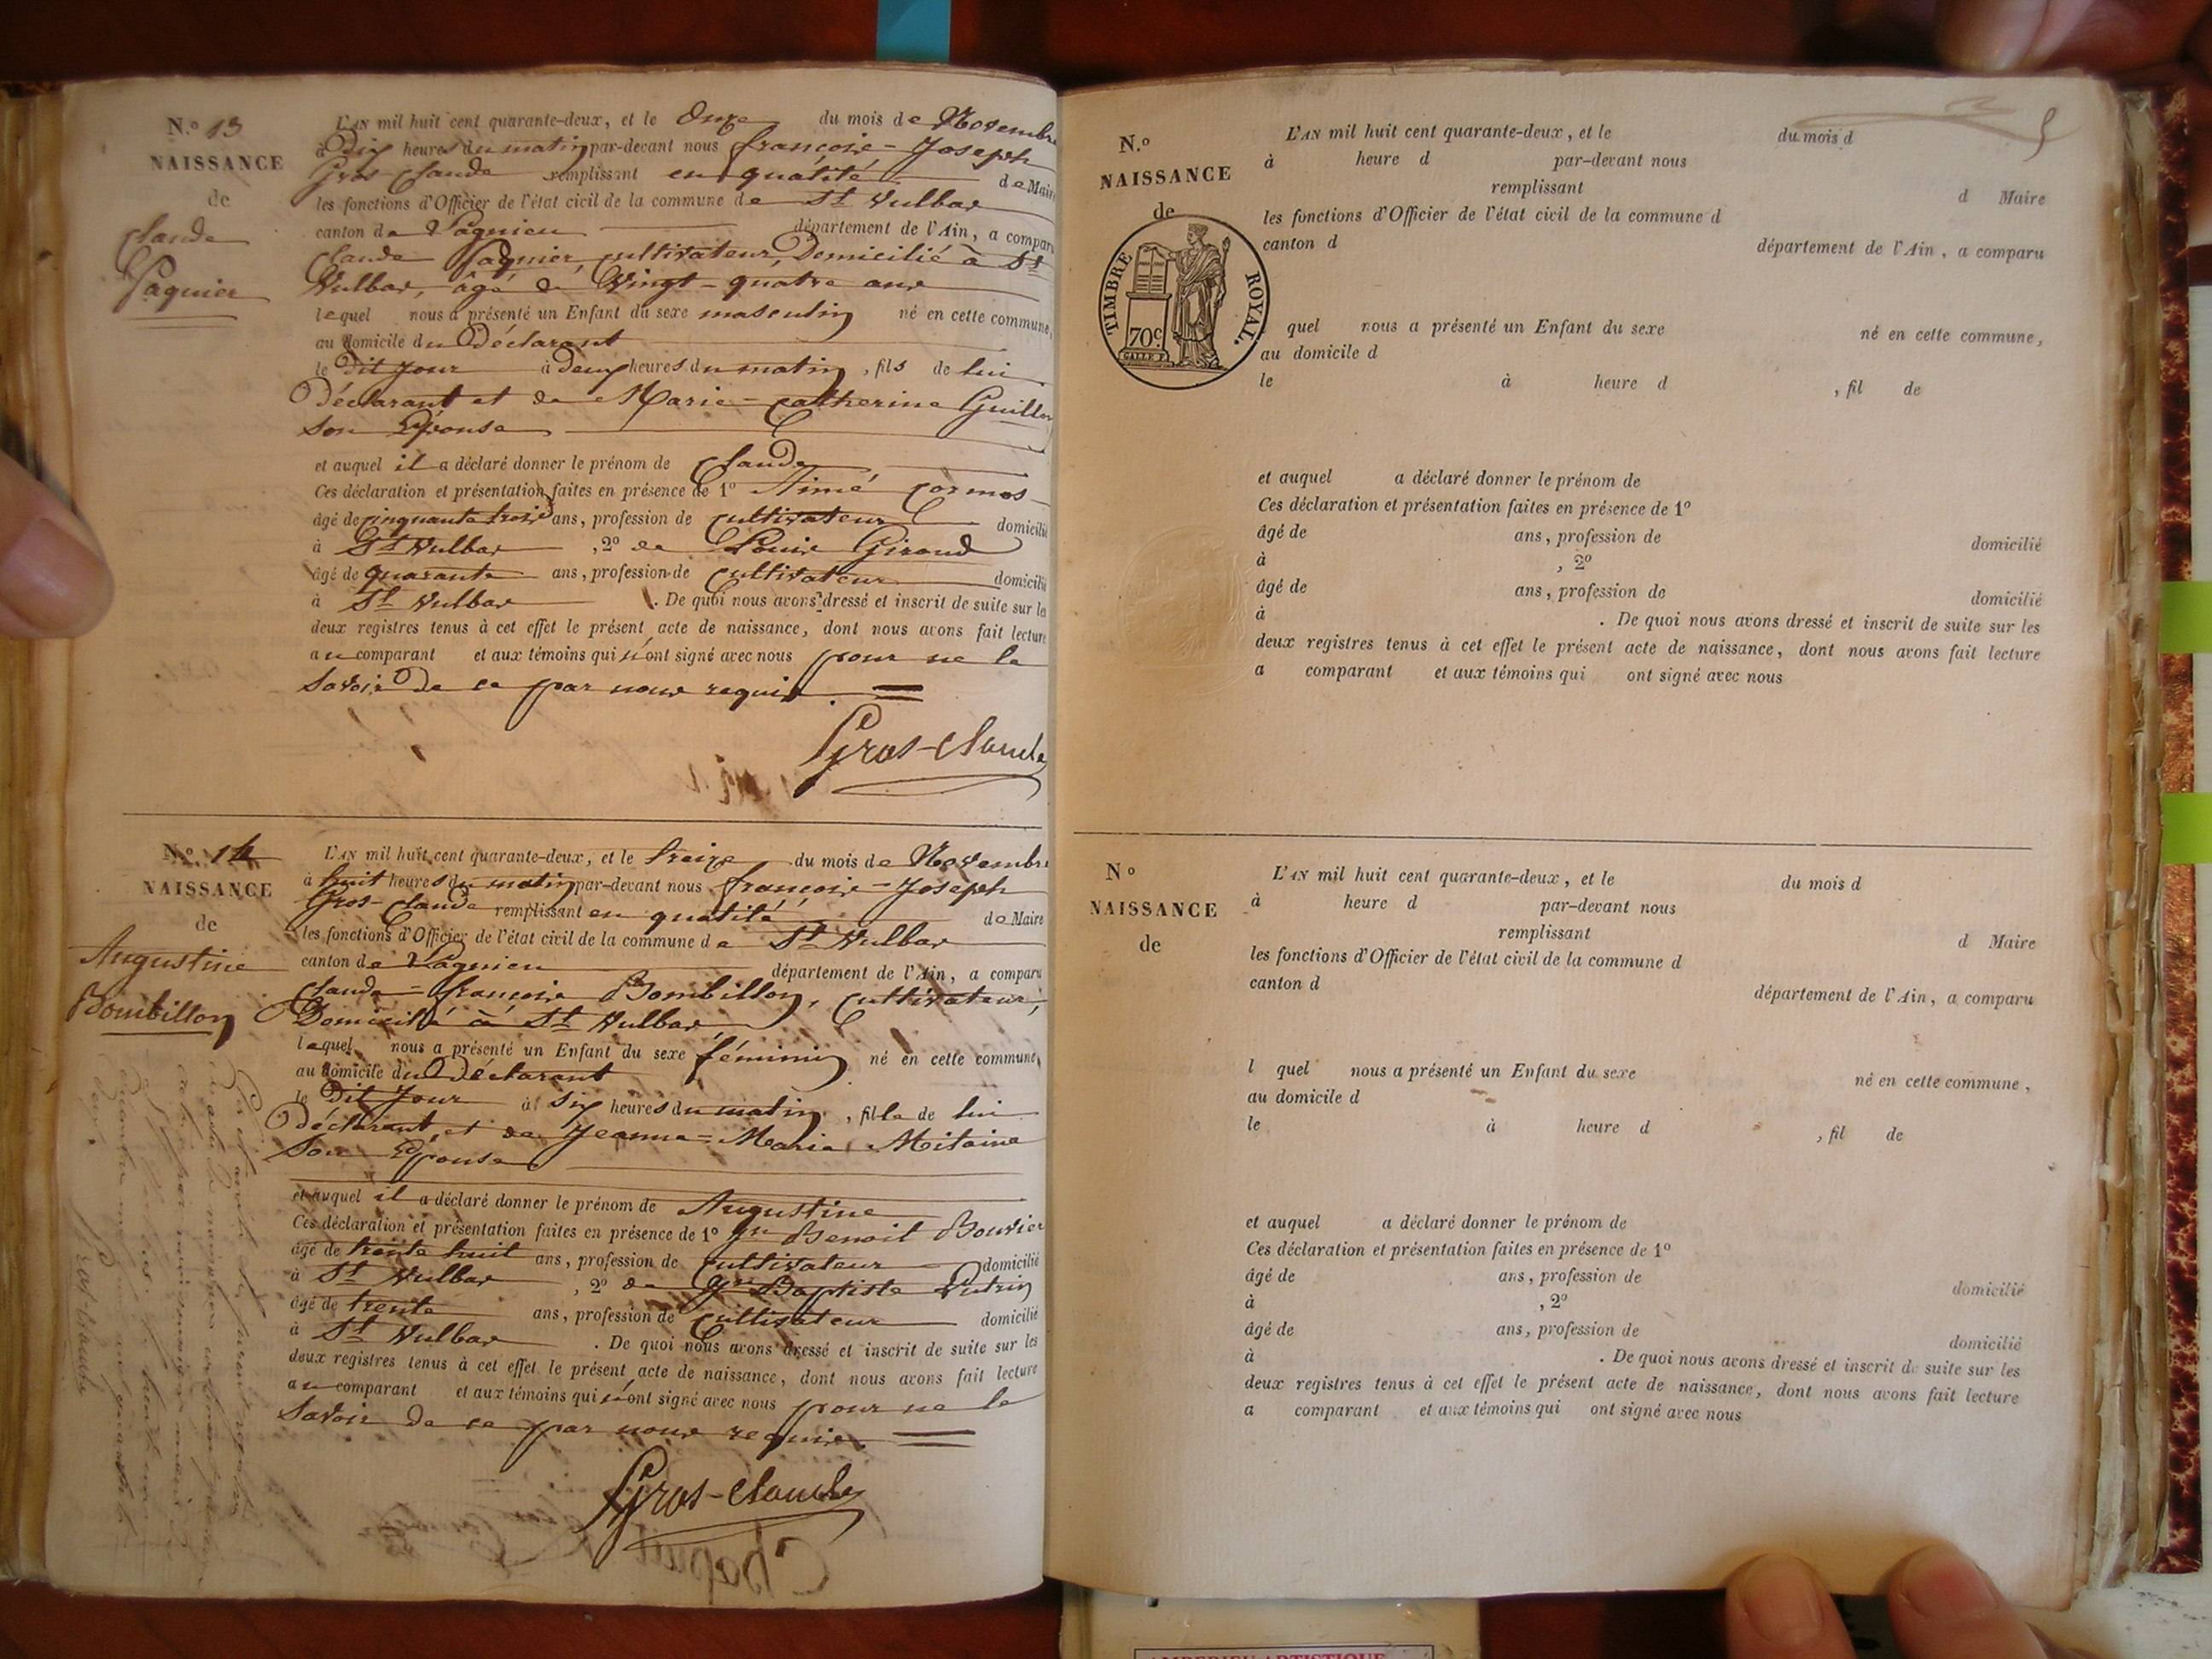 N.o 13
NAISSANCE
de
Claude
Paquier
L'AN mil huit cent quarante-deux, et le Onze du mois de Novembre
à Dix heures du matin par-devant nous françois-Joseph
Gros-Claude remplissant en qualité de Maire
les fonctions d'Officier de l'état civil de la commune de St Vulbas
canton de Lagnieu département de l'Ain, a comparu
Claude Paquier, cultivateur, Domicilié à St
Vulbas, âgé de Vingt-quatre ans
lequel nous a présenté un Enfant du sexe masculin né en cette commune,
au domicile du Déclarant
le dit jour à Deux heures du matin, fils de lui
Déclarant et de Marie-Catherine Guillon
Son Epouse
et auquel il a déclaré donner le prénom de Claude
Ces déclaration et présentation faites en présence de 1o Aimé Cormos
âgé de cinquante trois ans, profession de cultivateur domicilié
à St Vulbas, 2o de Louis Giroud
âgé de quarante ans, profession de cultivateur domicilié
à St Vulbas. De quoi nous avons dressé et inscrit de suite sur les
deux registres tenus à cet effet le présent acte de naissance, dont nous avons fait lecture
au comparant et aux témoins qui n'ont signé avec nous pour ne le
Savoir de ce par nous requis.
Gros-Claude
N.o 14
NAISSANCE
de
Augustine
Bombillon
L'AN mil huit cent quarante-deux, et le treize du mois de Novembre
à huit heures du matin par-devant nous françois-Joseph
Gros-Claude remplissant en qualité de Maire
les fonctions d'Officier de l'état civil de la commune de St Vulbas
canton de Lagnieu département de l'Ain, a comparu
Claude-françois Bombillon, cultivateur,
Domicilié à St Vulbas
lequel nous a présenté un Enfant du sexe féminin né en cette commune,
au domicile du Déclarant
le Dit Jour à Six heures du matin, fille de lui
Déclarant, et de Jeanne-Marie Mitaine
Son Epouse
et auquel il a déclaré donner le prénom de Augustine
Ces déclaration et présentation faites en présence de 1o Jn Benoit Bouvier
âgé de trente huit ans, profession de cultivateur domicilié
à St Vulbas, 2o de Jn Baptiste Putrin
âgé de trente ans, profession de cultivateur domicilié
à St Vulbas. De quoi nous avons dressé et inscrit de suite sur les
deux registres tenus à cet effet le présent acte de naissance, dont nous avons fait lecture
au comparant et aux témoins qui n'ont signé avec nous pour ne le
Savoir de ce par nous requis.
Gros-Claude
N.o
NAISSANCE
de
TIMBRE ROYAL.
70c
GALLE F.
L'AN mil huit cent quarante-deux, et le du mois d
à heure d par-devant nous
remplissant d Maire
les fonctions d'Officier de l'état civil de la commune d
canton d département de l'Ain, a comparu
quel nous a présenté un Enfant du sexe né en cette commune,
au domicile d
le à heure d , fil de
et auquel a déclaré donner le prénom de
Ces déclaration et présentation faites en présence de 1o
âgé de ans, profession de domicilié
à , 2o
âgé de ans, profession de domicilié
à . De quoi nous avons dressé et inscrit de suite sur les
deux registres tenus à cet effet le présent acte de naissance, dont nous avons fait lecture
a comparant et aux témoins qui ont signé avec nous
N o
NAISSANCE
de
L'AN mil huit cent quarante-deux, et le du mois d
à heure d par-devant nous
remplissant d Maire
les fonctions d'Officier de l'état civil de la commune d
canton d département de l'Ain, a comparu
l quel nous a présenté un Enfant du sexe né en cette commune,
au domicile d
le à heure d , fil de
et auquel a déclaré donner le prénom de
Ces déclaration et présentation faites en présence de 1o
âgé de ans, profession de domicilié
à , 2o
âgé de ans, profession de domicilié
à . De quoi nous avons dressé et inscrit de suite sur les
deux registres tenus à cet effet le présent acte de naissance, dont nous avons fait lecture
a comparant et aux témoins qui ont signé avec nous